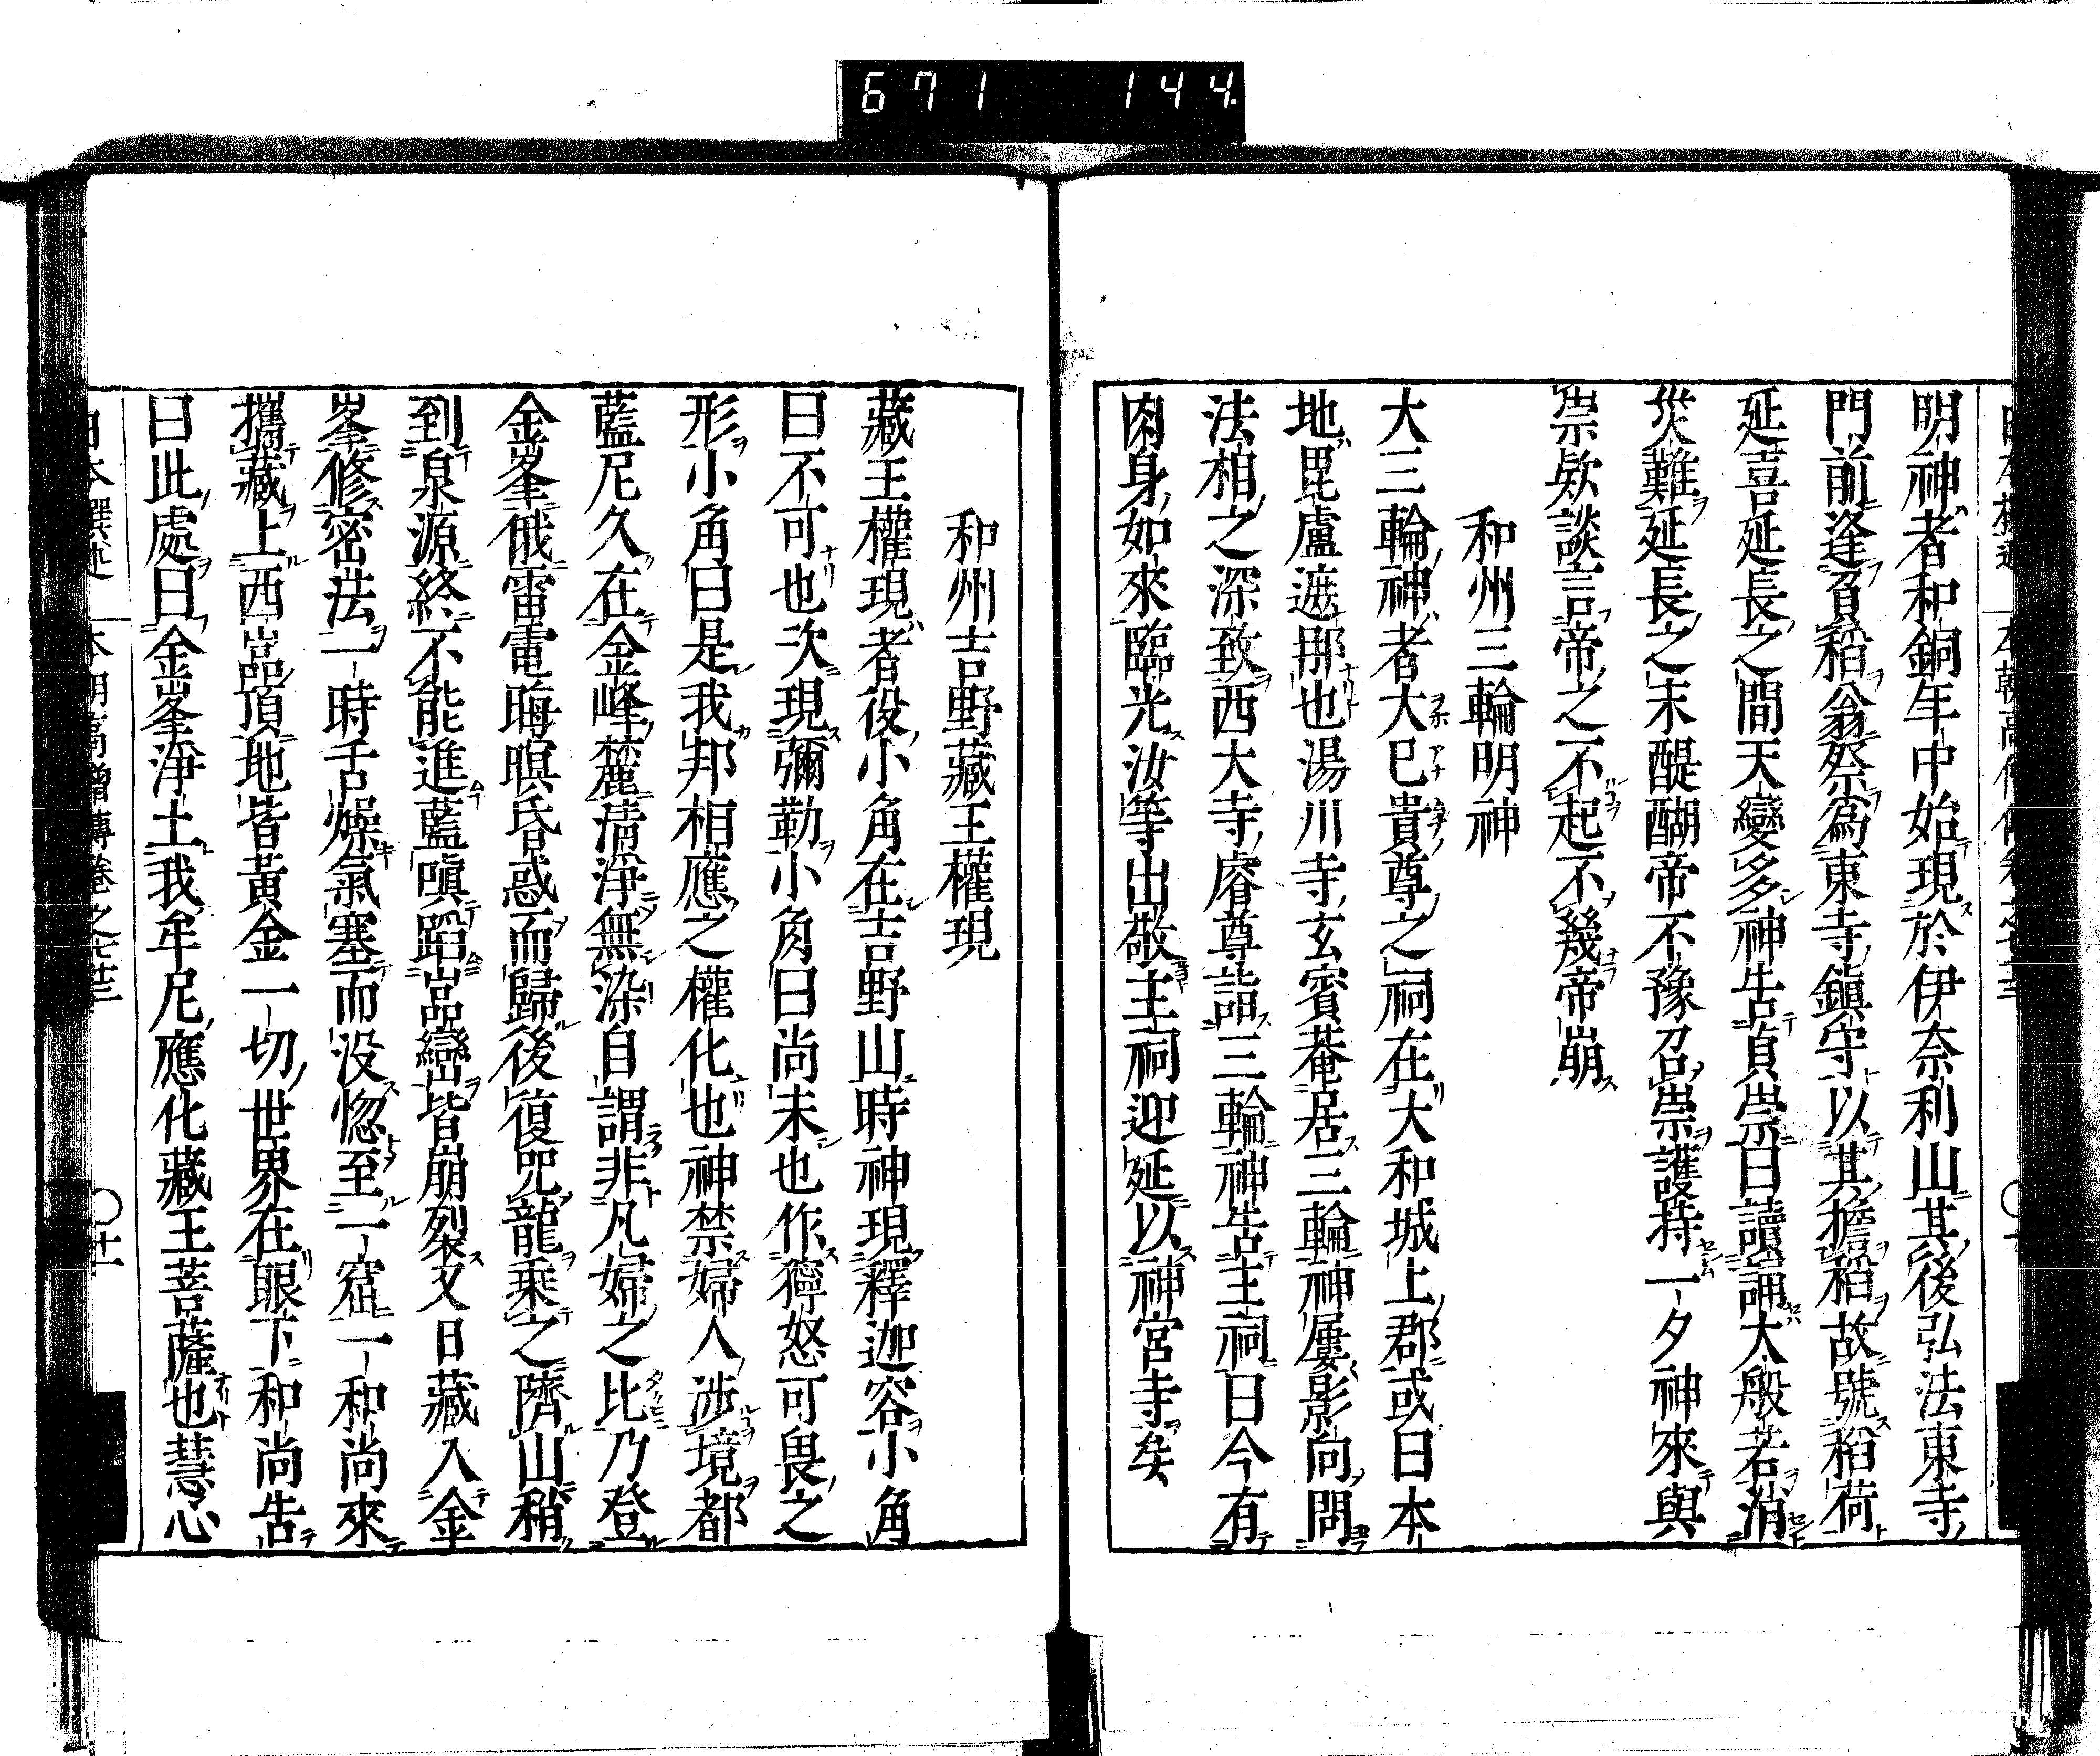 671 144.
明神者和銅年中始現於伊奈利山其後弘法東寺
門前逢負稻翁祭爲東寺鎭守以其擔稻故號稻荷
延喜延長之間天變多神告貞崇曰讀誦大般若消
災難延長之末醍醐帝不豫召崇護持一夕神來與
崇欵談言帝之不起不幾帝崩
和州三輪明神
大三輪神者大巳貴尊之祠在大和城上郡或曰本
地毘盧遮那也湯川寺玄賓菴居三輪神屢影向問
法相之深致西大寺睿尊詣三輪神告主祠曰今有
肉身如來臨光汝等出敬主祠迎延以神宮寺矣
和州吉野藏王權現
藏王權現者役小角在吉野山時神現釋迦容小角
曰不可也次現彌勒小角曰尚未也作獰怒可畏之
形小角曰是我邦相應之權化也神禁婦人渉境都
藍尼久在金峰麓清淨無染自謂非凡婦之比乃登
金峯俄雷電晦暝昏惑而歸後復咒龍乘之隮山稍
到泉源終不能進藍嗔蹈嵓巒皆崩裂又日藏入金
峯修密法一時舌燥氣塞而没惚至一窟一和尚來
攜藏上西嵓頂地皆黃金一切世界在眼下和尚告
曰此處曰金峯淨土我牟尼應化藏王菩薩也慧心
日本撰述 本朝高僧傳卷之七十三 〇廿一